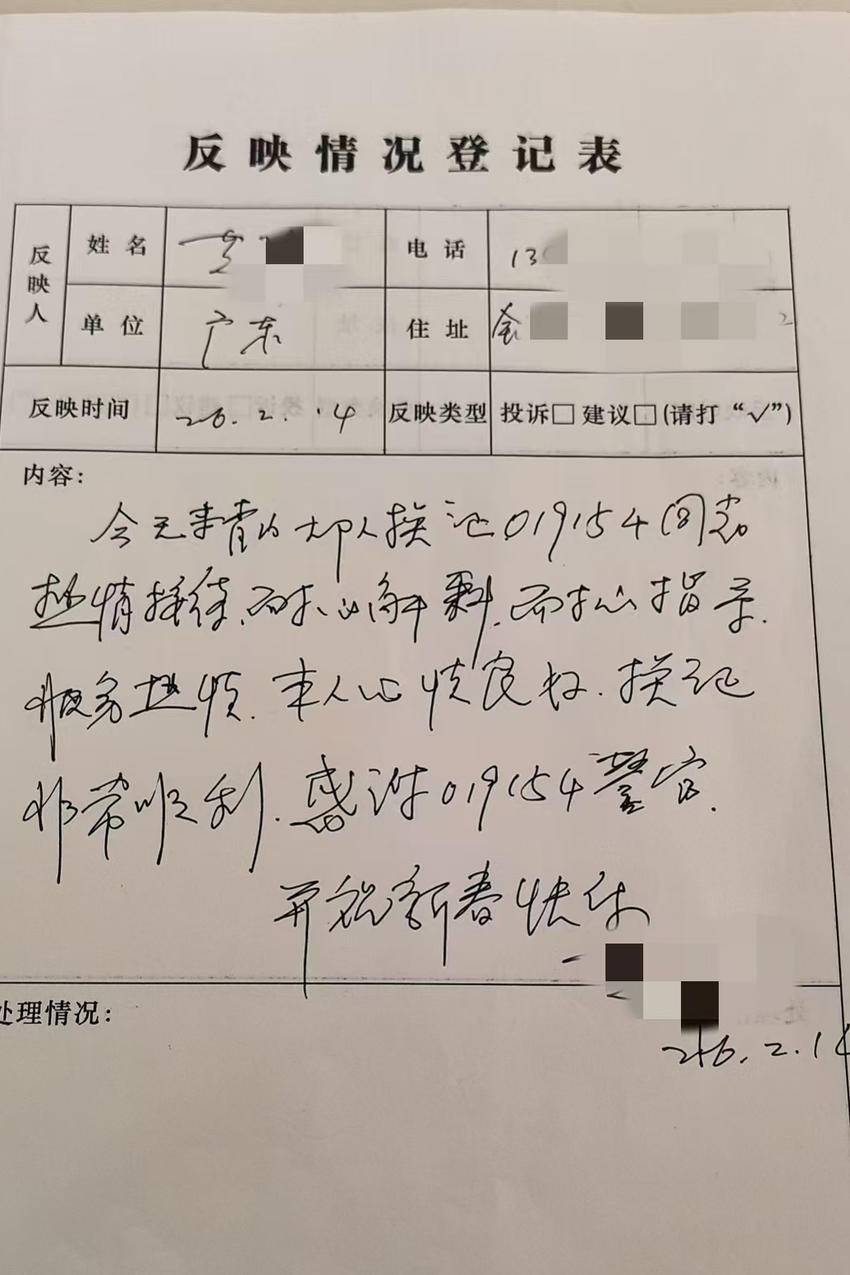 反映情况登记表
反映人
姓名
电话 13
单位 广东
住址
反映时间 26.2.14
反映类型 投诉□ 建议□(请打“√”)
内容:
今天来 换证019154同志
热情接待,耐心解释,耐心指导.
服务热情.本人心情良好.换证
非常顺利.感谢019154警官.
并祝新春快乐
处理情况:
26.2.14